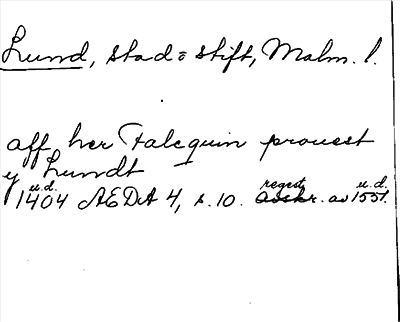 Lund, stad o stift, Malm. l.
aff her Falequin prouest
y Lundt
u.d. 1404 AEDA 4, s. 10. regest av u.d. 1551.